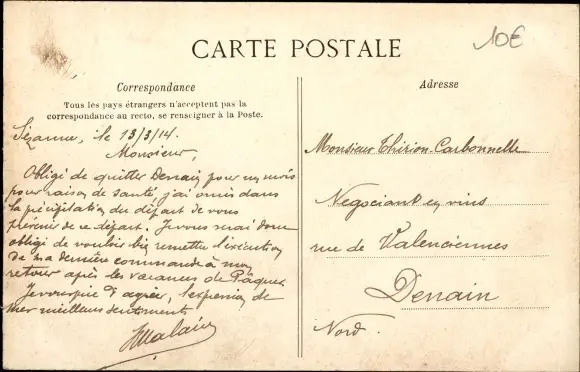 10€
CARTE POSTALE
Correspondance
Tous les pays étrangers n'acceptent pas la
correspondance au recto, se renseigner à la Poste.
Sézanne, le 13/3/14.
Monsieur,
Obligé de quitter Denain pour un mois
pour raison de santé j'ai omis dans
la précipitation du départ de vous
prévenir de ce départ. Je vous serai donc
obligé de vouloir bien remettre l'exécution
de ma dernière commande à mon
retour après les vacances de Pâques.
Je vous prie d'agréer, l'expression de
mes meilleurs sentiments
Adresse
Monsieur Thirion-Carbonnelle
Négociant en vins
rue de Valenciennes
Denain
Nord.